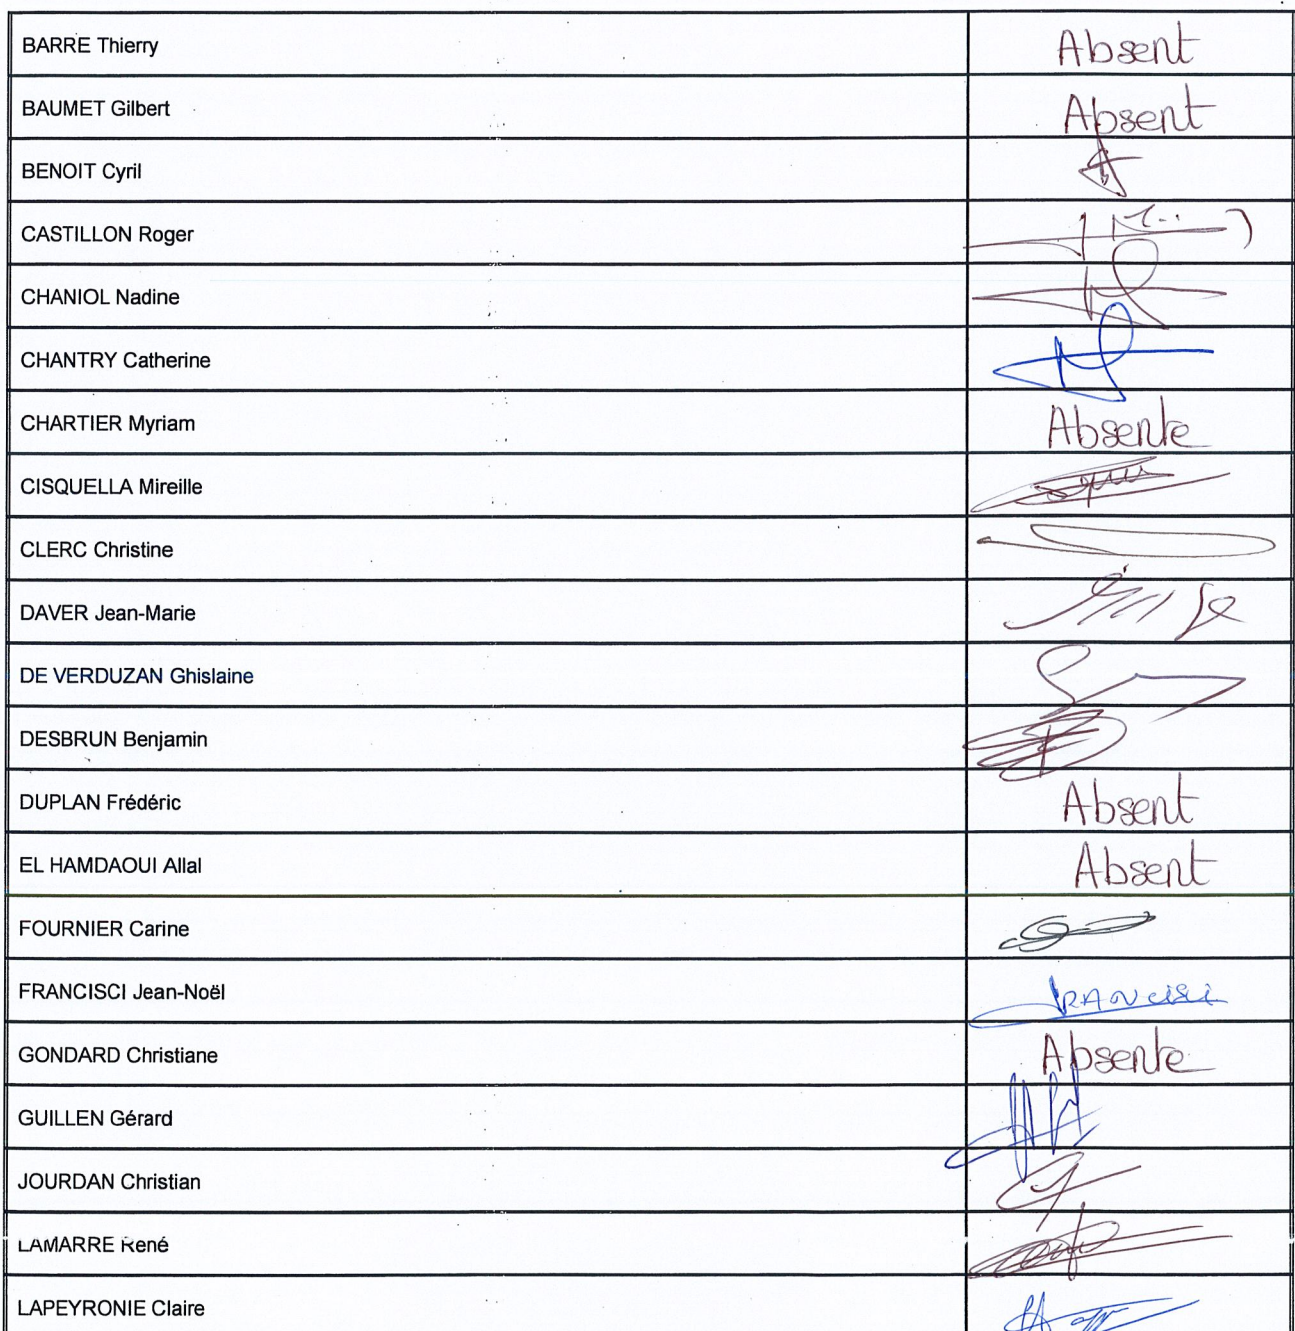 BARRE Thierry Absent
BAUMET Gilbert Absent
BENOIT Cyril
CASTILLON Roger
CHANIOL Nadine
CHANTRY Catherine
CHARTIER Myriam Absente
CISQUELLA Mireille
CLERC Christine
DAVER Jean-Marie
DE VERDUZAN Ghislaine
DESBRUN Benjamin
DUPLAN Frédéric Absent
EL HAMDAOUI Allal Absent
FOURNIER Carine
FRANCISCI Jean-Noël
GONDARD Christiane Absente
GUILLEN Gérard
JOURDAN Christian
LAMARRE René
LAPEYRONIE Claire